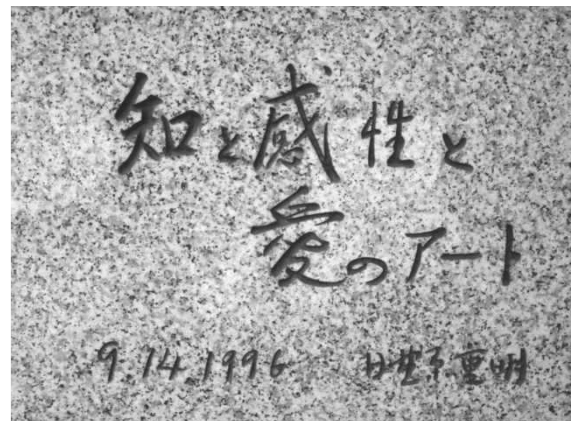 知と感性と
愛のアート
9.14.1996 日野原重明